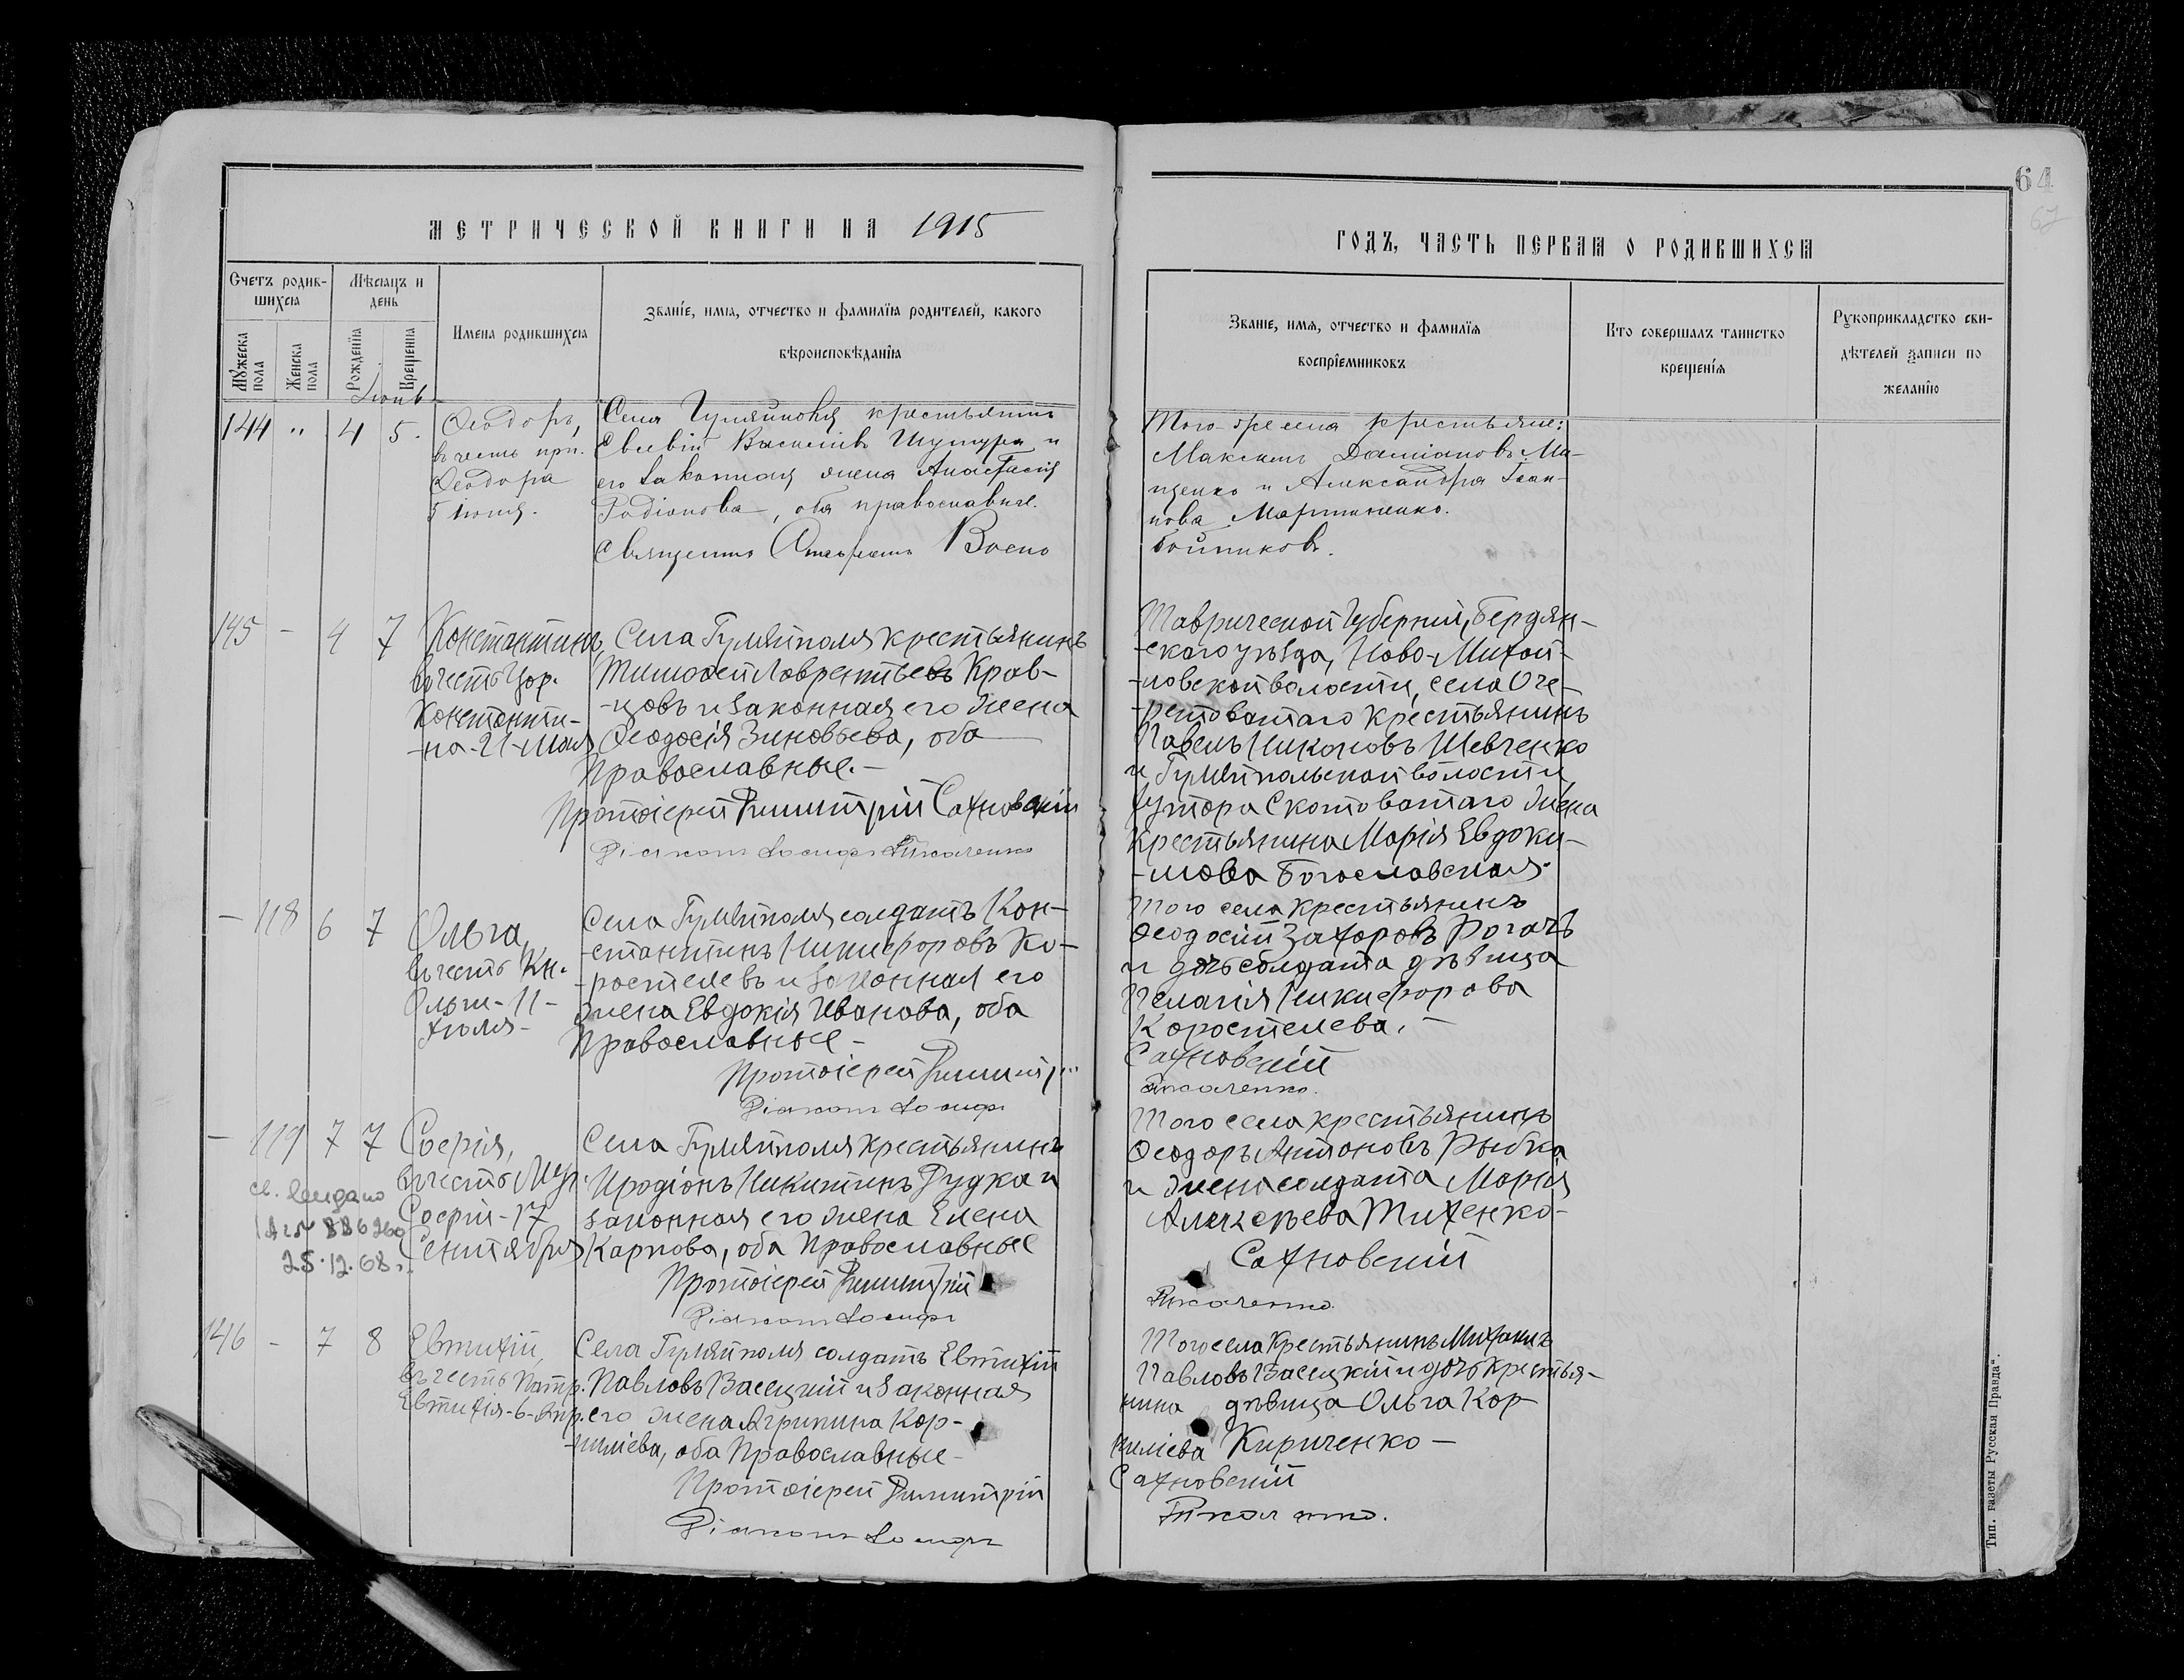 64
67
МЕТРИЧЕСКОЙ КНИГИ НА 1915
ГОДЪ, ЧАСТЬ ПЕРВАЯ О РОДИВШИХСЯ
Счетъ родив-
шихся
Мѣсяцъ и
день
Мужеска
пола
Женска
пола
Рожденія
Крещенія
Имена родившихся
Званіе, имя, отчество и фамилія родителей, какого
вѣроисповѣданія
Званіе, имя, отчество и фамилія
воспріемниковъ
Кто совершалъ таинство
крещенія
Рукоприкладство сви-
дѣтелей записи по
желанію
144 " 4 5.
Ѳеодоръ,
въ честь
Ѳеодора
5 іюня.
Села Гуляйполя крестьянинъ
Евсевій Васильевъ и
его законная жена Анастасія
Родіонова, оба православные.
Священникъ
Того-же села крестьяне:
Максимъ Даміановъ Ми-
щенко и Александра Іоан-
нова Мартыненко.
Бойниковъ.
145 - 4 7
Константинъ,
въ честь Цар.
Константи-
-на-21-Мая
Села Гуляйполя крестьянинъ
Тимоѳей Лаврентьевъ Крав-
-цовъ и законная его жена
Ѳеодосія Зиновьева, оба
Православные.-
Протоіерей Димитрій Сахновскій
Діаконъ Іосифъ Ткаченко
Таврической Губерніи, Бердян-
-скаго уѣзда, Ново-Михай-
-ловской волости, села Оче-
-ретоватаго крестьянинъ
Павелъ Никоновъ Шевченко
и Гуляйпольской волости
хутора Скотоватаго жена
крестьянина Марія Евдоки-
-мова Богославская-
- 118 6 7
Ольга,
въ честь Кн.
Ольги-11-
Іюля-
Села Гуляйполя солдатъ Кон-
-стантинъ Никифоровъ Ко-
-ростелевъ и законная его
жена Евдокія Иванова, оба
Православные-
Протоіерей Димитрій
Діаконъ Іосифъ
Того села крестьянинъ
Ѳеодосій Захаровъ Рогачъ
и дочь солдата дѣвица
Пелагія Никифорова
Коростелева.-
Сахновскій
Ткаченко.
- 119 7 7
Софія,
въ честь Муч.
Софіи-17
Сентября
св. выдано
886260
25.12.68г.
Села Гуляйполя крестьянинъ
Иродіонъ Никитинъ Рудка и
законная его жена Елена
Карпова, оба Православные
Протоіерей Димитрій
Діаконъ Іосифъ
Того села крестьянинъ
Ѳеодоръ Антоновъ Рыбка
и жена солдата Марія
Алексѣева Тихенко-
Сахновскій
Ткаченко.
146 - 7 8
Евтихій,
въ честь Патр.
Евтихія-6-Апр.
Села Гуляйполя солдатъ Евтихій
Павловъ Васецкій и законная
его жена Агрипина Кор-
-ниліева, оба Православные-
Протоіерей Димитрій
Діаконъ Іосифъ
Того села крестьянинъ Михаилъ
Павловъ Васецкій и дочь крестья-
нина дѣвица Ольга Кор-
ниліева Кириченко-
Сахновскій
Ткаченко.
Тип. газеты Русская Правда".